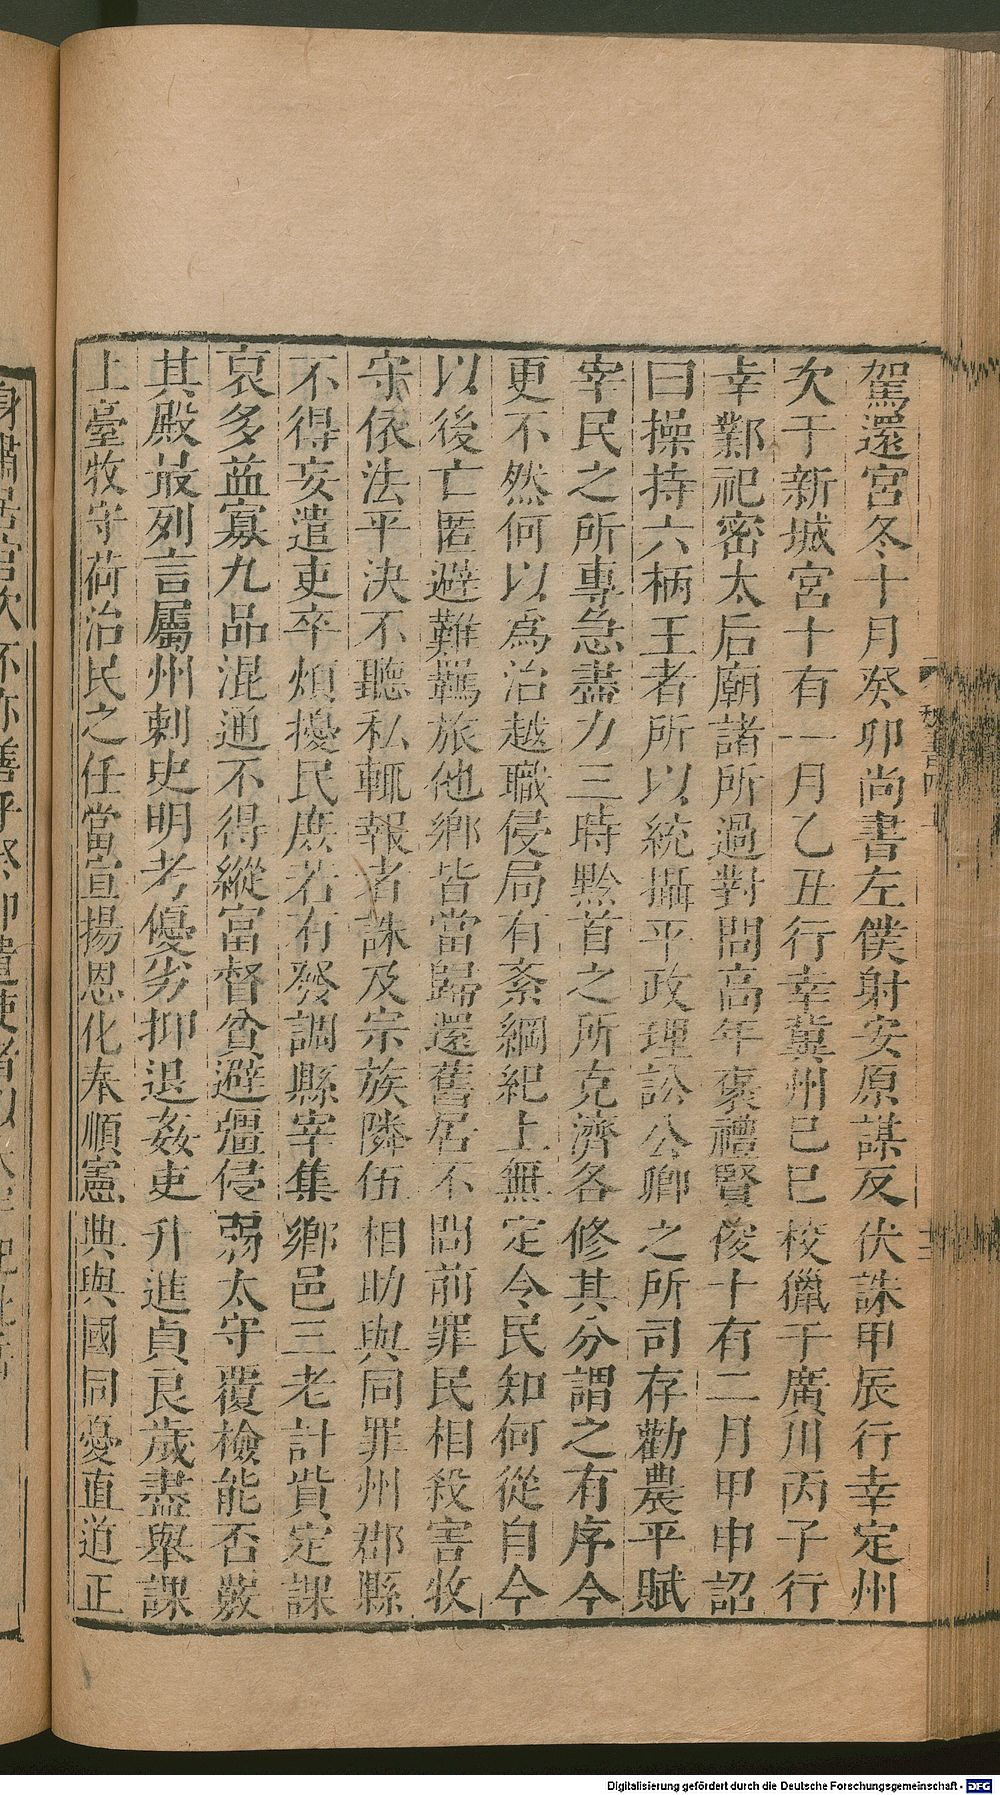 駕還宮冬十月癸卯尚書左僕射安原謀反伏誅甲辰行幸定州
次于新城宮十有一月乙丑行幸冀州己巳校獵于廣川丙子行
幸鄴祀密太后廟諸所過對問高年褒禮賢俊十有二月甲申詔
曰操持六柄王者所以統攝平政理訟公卿之所司存勸農平賦
宰民之所專急盡力三時黔首之所克濟各修其分謂之有序今
更不然何以爲治越職侵局有紊綱紀上無定令民知何從自今
以後亡匿避難羈旅他鄉皆當歸還舊居不問前罪民相殺害牧
守依法平決不聽私輒報者誅及宗族隣伍相助與同罪州郡縣
不得妄遣吏卒煩擾民庶若有發調縣宰集鄉邑三老計貲定課
裒多益寡九品混通不得縱富督貧避彊侵弱太守覆檢能否覈
其殿最列言屬州刺史明考優劣抑退姦吏升進貞良歲盡舉課
上臺牧守荷治民之任當宣揚恩化奉順憲典與國同憂直道正
Digitalisierung gefördert durch die Deutsche Forschungsgemeinschaft - DFG